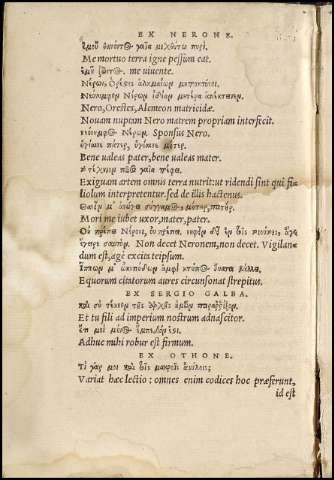 EX NERONE.
ἐμοῦ θανόντος γαῖα μιχθήτω πυρί.
Me mortuo terra igne pessum eat.
ἐμοῦ ζῶντος. me uiuente.
Νέρων, Ὀρέστης Ἀλκμαίων μητροκτόνοι.
Νεόνυμφον Νέρων ἰδίαν μητέρα ἀπέκτεινεν.
Nero, Orestes, Alcmeon matricidæ.
Nouam nuptam Nero matrem propriam interficit.
Νέρων. Sponsus Nero.
ὑγίαινε πάτερ, ὑγίαινε μῆτερ.
Bene ualeas pater, bene ualeas mater.
γαῖα τρέφει.
Exiguam artem omnis terra nutrit: ut ridendi sint qui fi=
liolum interpretentur. sed de illis hactenus.
Mori me iubet uxor, mater, pater.
Οὐ πρέπει Νέρωνι, οὐ πρέπει, νήφειν δεῖ ἐν τοῖς τοιούτοις, ἄγε
ἔγειρε σαυτόν. Non decet Neronem, non decet. Vigilan=
dum est, age excies teipsum.
Ἵππων μ' ὠκυπόδων ἀμφὶ κτύπος οὔατα βάλλει.
Equorum citatorum aures circunsonat strepitus.
EX SERGIO GALBA.
καὶ σὺ τέκνον τῆς ἀρχῆς ἡμῶν
Et tu fili ad imperium nostrum adnascitor.
ἔτι μοι μένος ἔμπεδόν ἐστι.
Adhuc mihi robur est firmum.
EX OTHONE.
Τί γάρ μοι καὶ μακροῖς αὐλοῖς;
Variat hæc lectio: omnes enim codices hoc præferunt,
id est